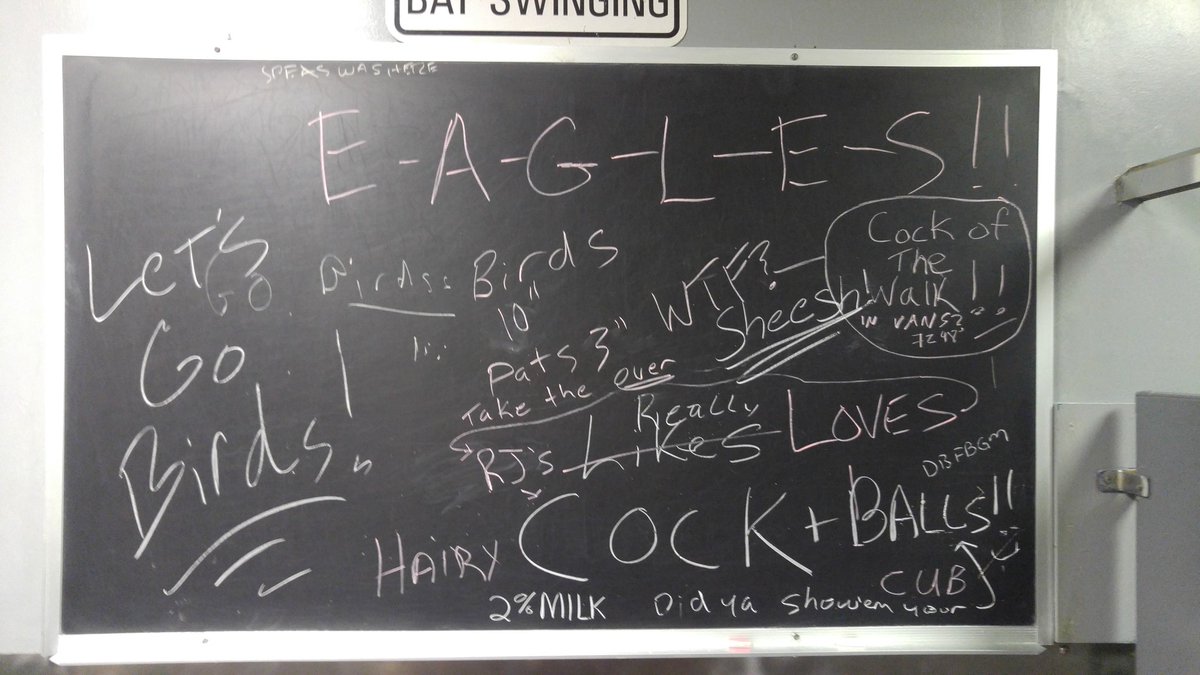 BAT SWINGING
SPEAS WAS HERE
E-A-G-L-E-S!!
LET'S
GO
Birds
Birds
10"
WTF?
Cock of
The
Walk!!
IN VANS?
Sheesh!
Go
!
Pats 3"
Take the over
Really
RJ's Likes LOVES
Birds
DBFBGM
HAIRY COCK + BALLS!!
CUB
2% MILK Did ya show'em your